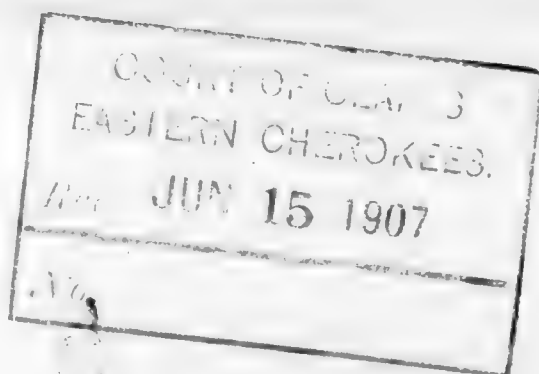 COURT OF CLAIMS
EASTERN CHEROKEES.
JUN 15 1907
No.